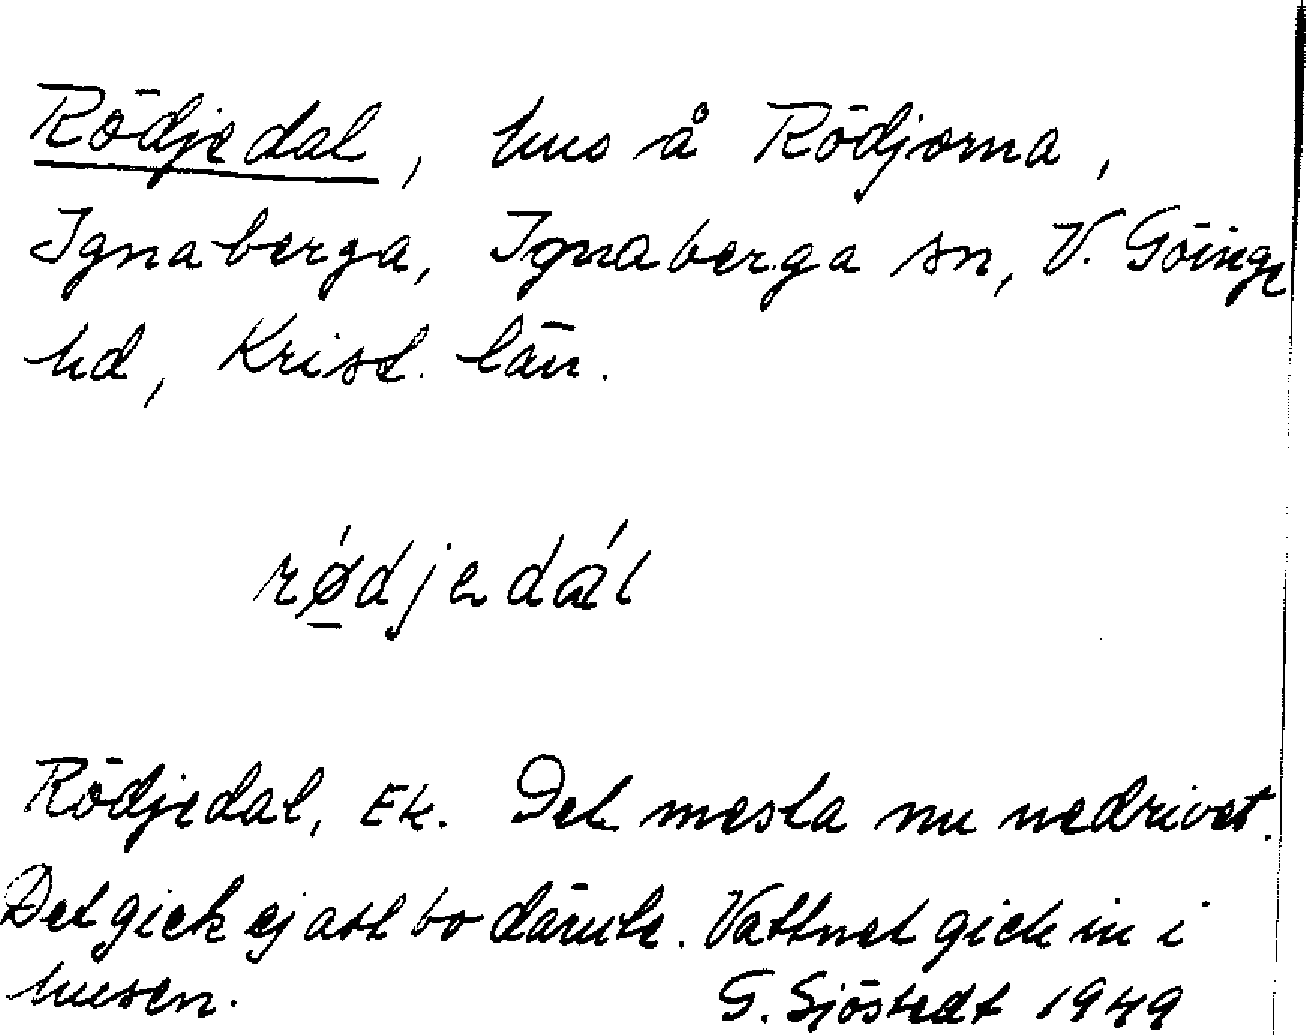 Rödjedal, hus å Rödjorna,
Ignaberga, Ignaberga sn, V. Göinge
hd, Krist. län.
rǿdjedál
Rödjedal, Ek. Det mesta nu nedrivet.
Det gick ej att bo därute. Vattnet gick in i
husen. G. Sjöstedt 1949